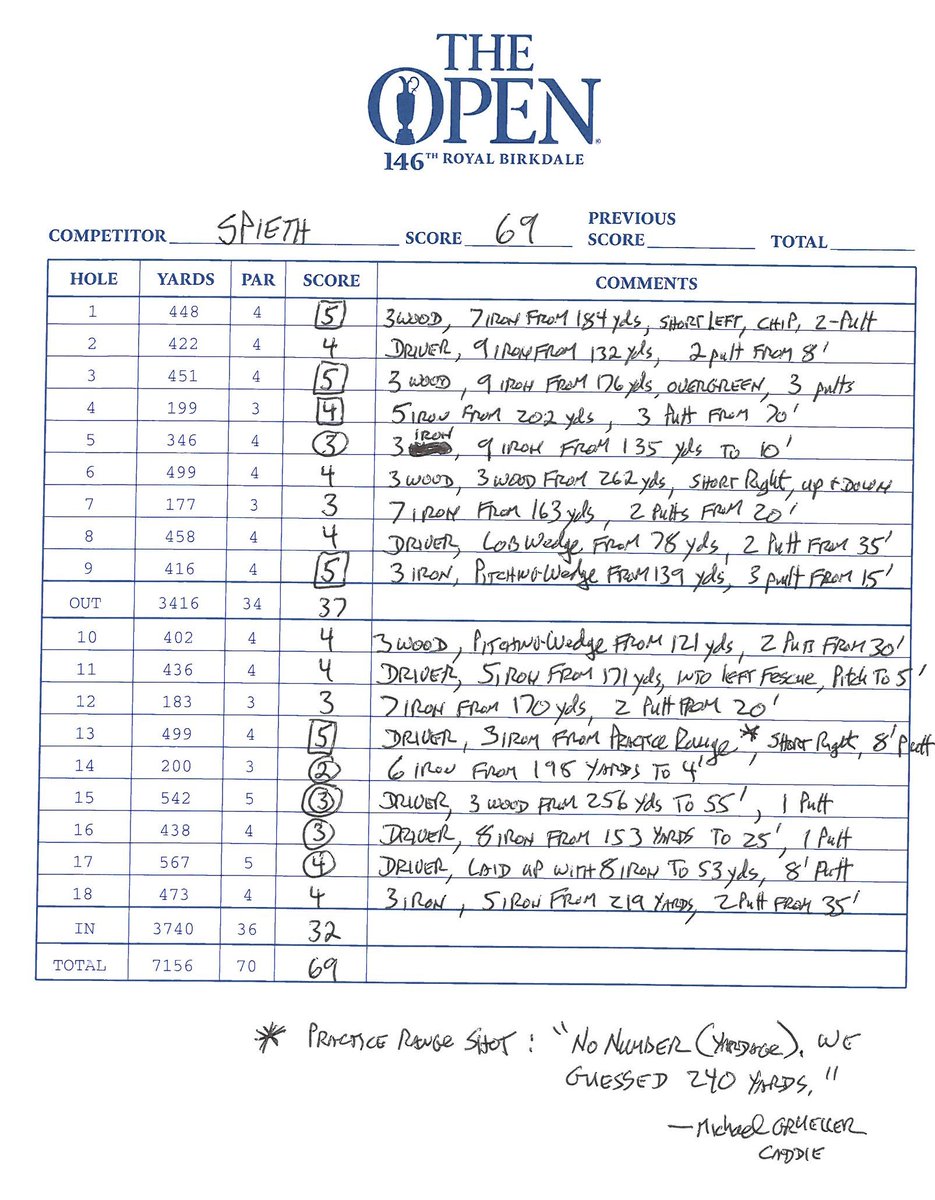 THE
OPEN
146TH ROYAL BIRKDALE
COMPETITOR SPIETH SCORE 69 PREVIOUS SCORE TOTAL
HOLE YARDS PAR SCORE COMMENTS
1 448 4 5 3 WOOD, 7 IRON FROM 184 yds, SHORT LEFT, CHIP, 2-Putt
2 422 4 4 DRIVER, 9 IRON FROM 132 yds, 2 putt FROM 8'
3 451 4 5 3 WOOD, 9 IRON FROM 176 yds, OVERGREEN, 3 putts
4 199 3 4 5 IRON FROM 202 yds, 3 Putt FROM 70'
5 346 4 3 3 IRON, 9 IRON FROM 135 yds TO 10'
6 499 4 4 3 WOOD, 3 WOOD FROM 262 yds, SHORT Right, up & DOWN
7 177 3 3 7 IRON FROM 163 yds, 2 Putts FROM 20'
8 458 4 4 DRIVER, LOB Wedge FROM 78 yds, 2 Putt FROM 35'
9 416 4 5 3 IRON, PITCHING-Wedge FROM 139 yds, 3 putt FROM 15'
OUT 3416 34 37
10 402 4 4 3 WOOD, PITCHING-Wedge FROM 121 yds, 2 Putts FROM 30'
11 436 4 4 DRIVER, 5 IRON FROM 171 yds, INTO LEFT FESCUE, Pitch TO 5'
12 183 3 3 7 IRON FROM 170 yds, 2 Putt FROM 20'
13 499 4 5 DRIVER, 3 IRON FROM PRACTICE RANGE*, SHORT Right, 8' Putt
14 200 3 2 6 IRON FROM 198 YARDS TO 4'
15 542 5 3 DRIVER, 3 WOOD FROM 256 Yds TO 55', 1 Putt
16 438 4 3 DRIVER, 8 IRON FROM 153 YARDS TO 25', 1 Putt
17 567 5 4 DRIVER, LAID UP WITH 8 IRON TO 53 yds, 8' Putt
18 473 4 4 3 IRON, 5 IRON FROM 219 YARDS, 2 Putt FROM 35'
IN 3740 36 32
TOTAL 7156 70 69
* PRACTICE RANGE SHOT: "NO NUMBER (YARDAGE). WE
GUESSED 240 YARDS."
—Michael GRELLER
CADDIE